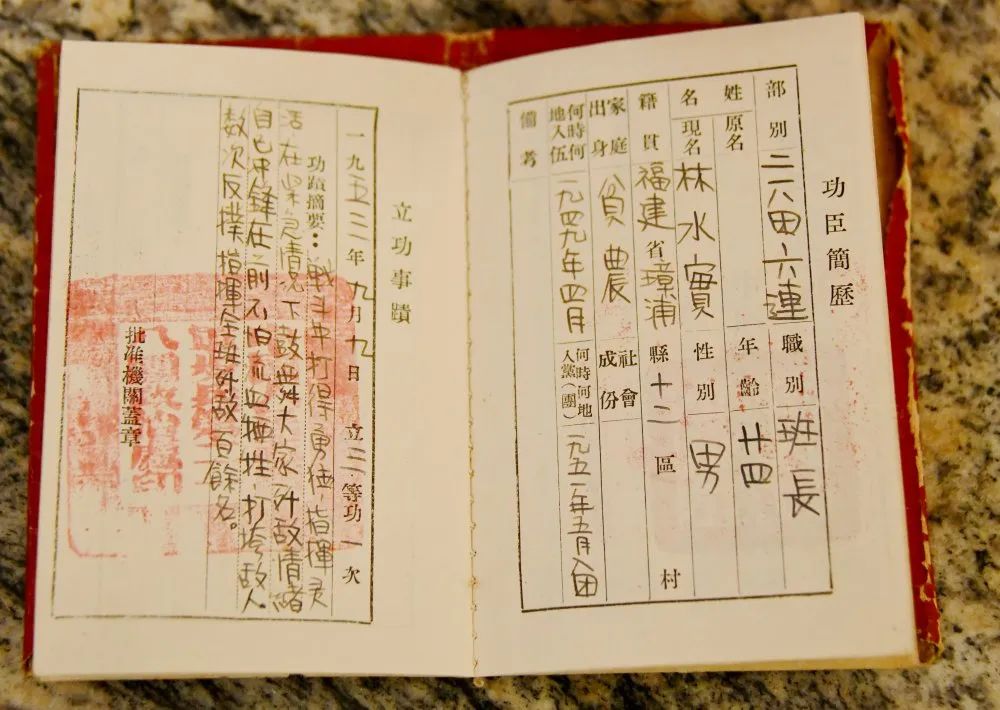 功臣簡歷
部別 六連 職別 班長
姓名 原名 年齡 廿四
現名 林水實 性別 男
籍貫 福建省璋浦縣十二區 村
家庭出身 貧農 社會成份
何時何地入伍 一九四九年四月 何時何地入黨(團) 一九五一年五月入团
備考
立功事蹟
一九五三年九月九日 立三等功一次
功蹟摘要：戰斗中打得勇猛指揮灵
活在紧急情况下鼓舞大家歼敌情緒
自己冲鋒在前不怕流血犧牲打垮敌人
数次反撲指揮全班歼敌百餘名。
批准機關蓋章